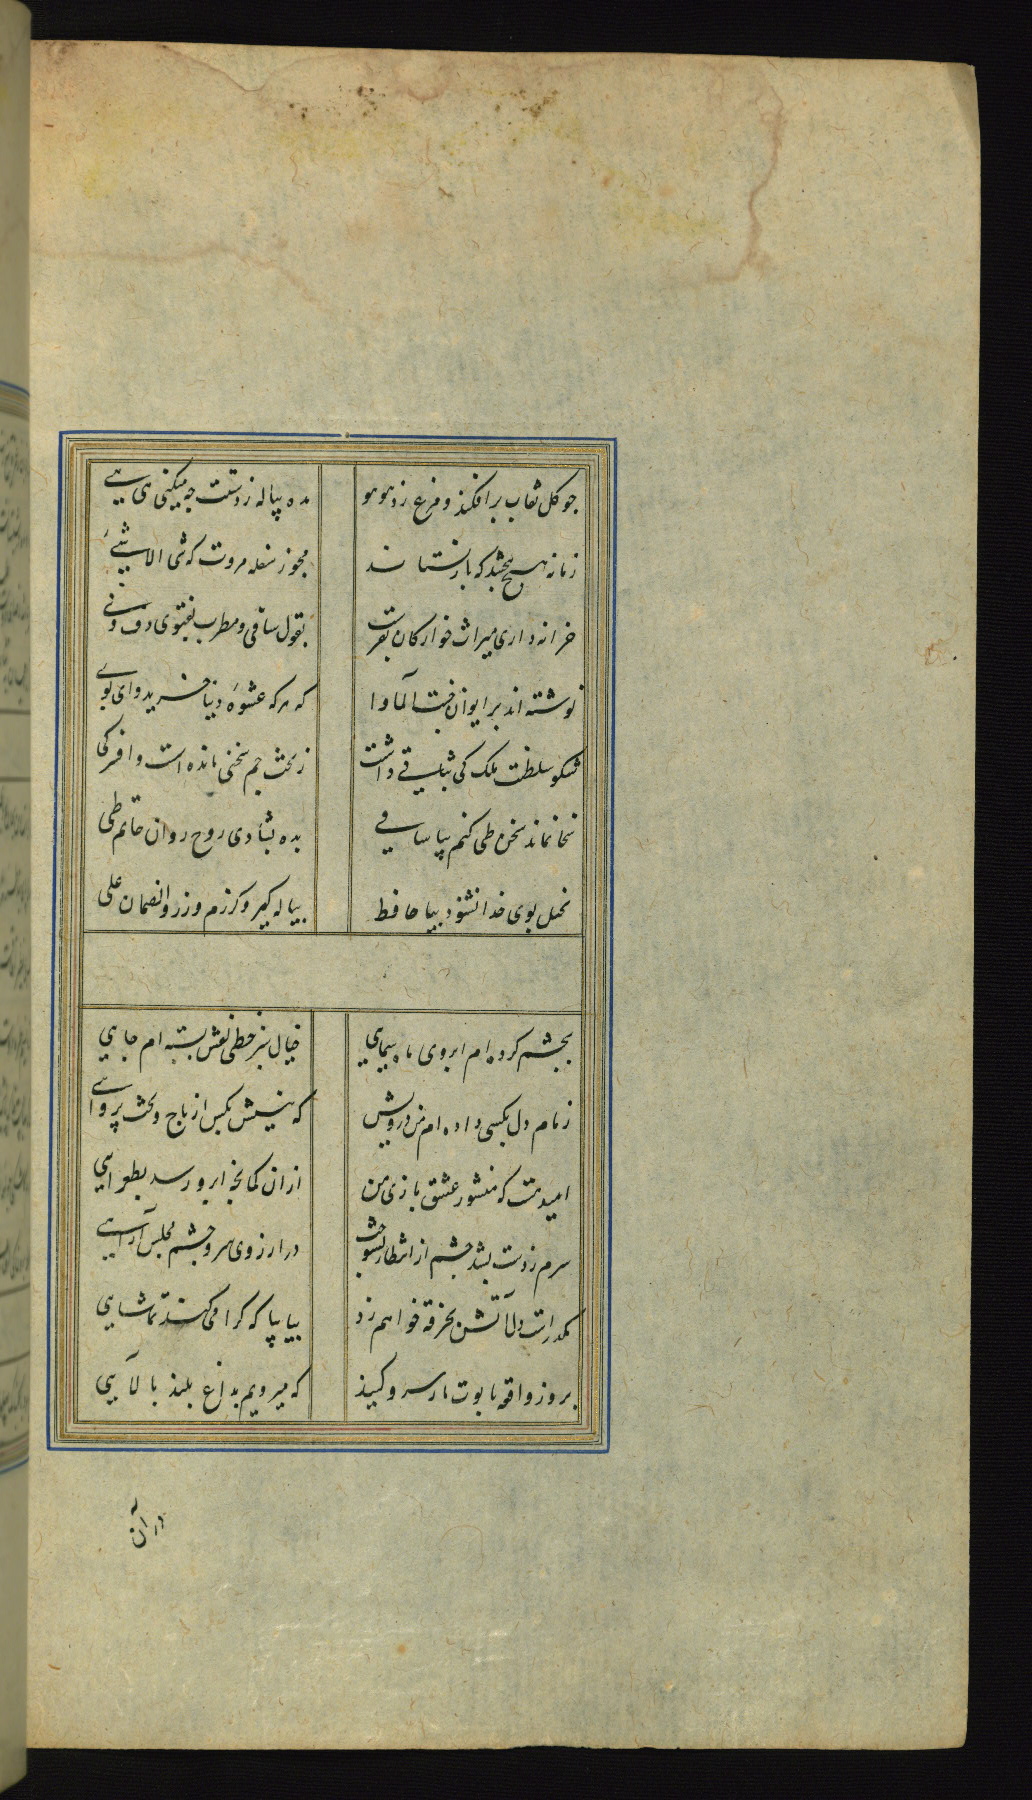 چو کل نقاب برافکند و مرغ زد هو هو مده پیاله ز دست چه میکنی هی هی
زمانه هیچ نبخشد که باز نستاند مجو ز سفله مروت که شی الا شیء
خزانه داری میراث خوارکان کفرست بقول ساقی و مطرب بفتوی دف و نی
نوشته اند بر ایوان جنت الماوا که هر که عشوهٔ دنیا خرید وای بوی
شکوه سلطنت ملک کی ثباتی داشت ز تخت جم سخنی مانده است و افسر کی
سخا نماند سخن طی کنم بیا ساقی بده بشادی روح روان حاتم طی
بخیل بوی خدا نشنود بیا حافظ پیاله کیر و کرم ورز و الضمان علی
بچشم کرده ام ابروی ماه سیمایی خیال سبز خطی نقش بسته ام جایی
زمام دل بکسی داده ام من درویش که نیستش بکس از تاج و تخت پروایی
امید هست که منشور عشق بازی من از ان کمانچه ابرو رسد بطغرایی
سرم ز دست بشد چشم از انتظار بسوخت در ارزوی سر و چشم مجلس آرایی
مکدرست دل آتش بخرقه خواهم زد بیا بیا که کرا می کند تماشایی
بروز واقعه تابوت ما ز سرو کنید که میرویم بداغ بلند بالایی
در آن